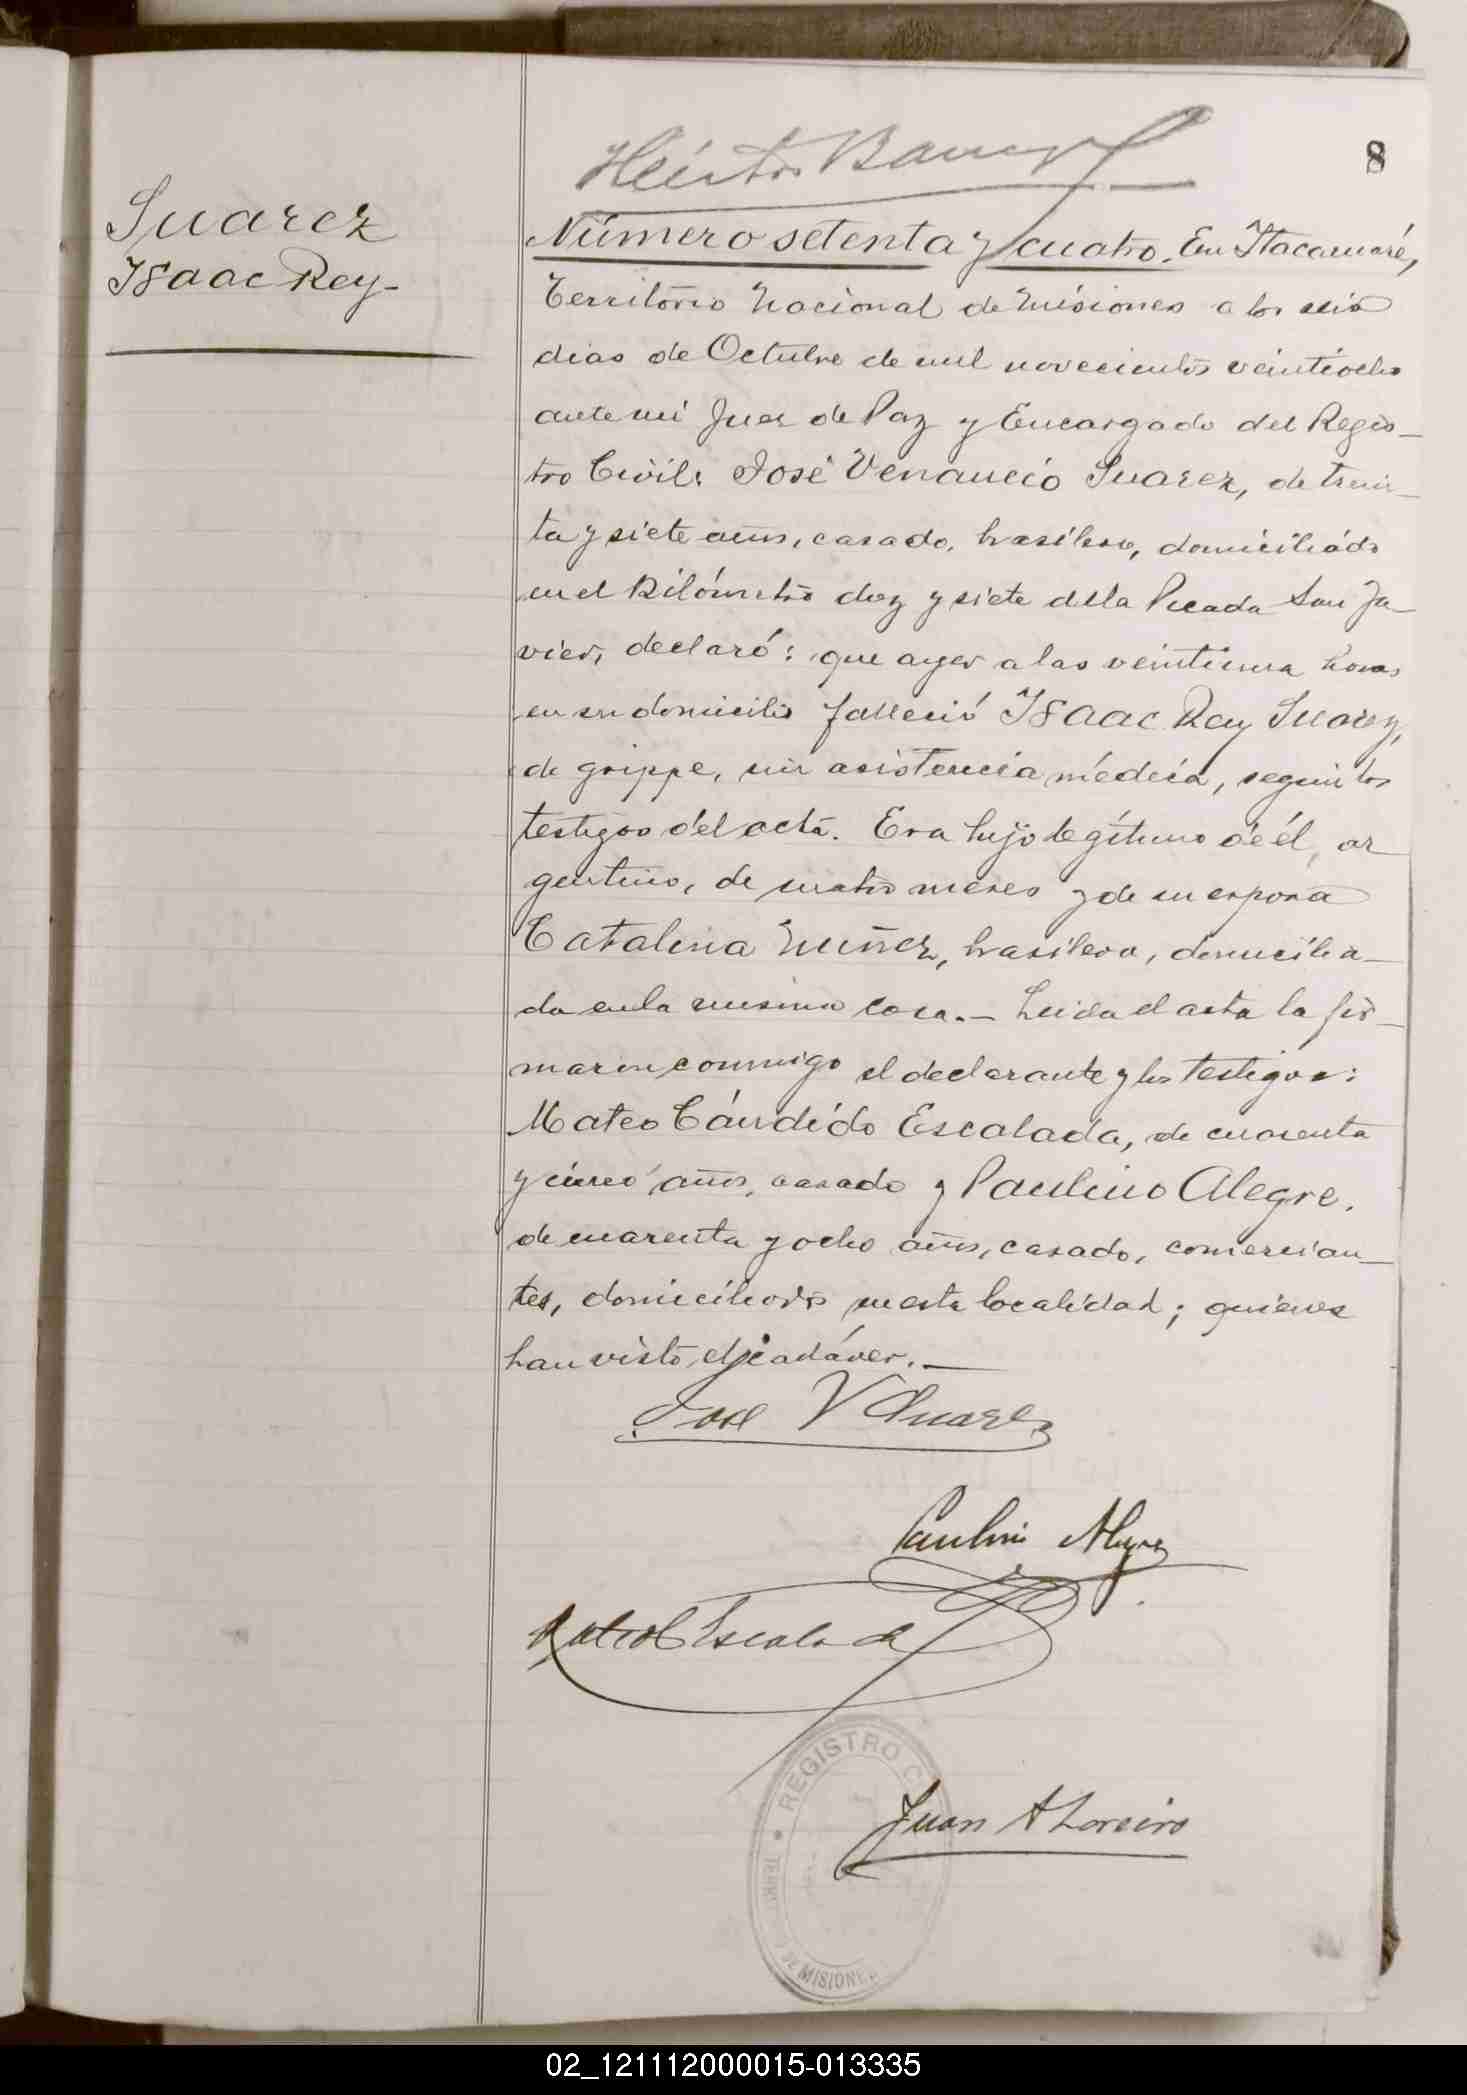 Héctor
8
Suarez
Isaac Rey-
Número setenta y cuatro. En Itacaruaré,
Territorio Nacional de Misiones a los seis
dias de Octubre de mil novecientos veintiocho
ante mi Juez de Paz y Encargado del Regis-
tro Civil: José Venancio Suarez, de trein-
ta y siete años, casado, brasilero, domiciliado
en el Kilómetro diez y siete de la Picada San Ja-
vier, declaró: que ayer a las veintiuna horas
en su domicilio falleció Isaac Rey Suarez,
de grippe, sin asistencia médica, segun los
testigos del acta. Era hijo legítimo de él, ar
gentino, de cuatro meses y de su esposa
Catalina Nuñez, brasilera, domicilia-
da en la misma casa.- Leida el acta la fir-
maron conmigo el declarante y los testigos:
Mateo Cándido Escalada, de cuarenta
y cinco años, casado y Paulino Alegre,
de cuarenta y ocho años, casado, comercian-
tes, domiciliados en esta localidad; quienes
han visto el cadáver.-
José V Suarez
Paulino Alegre
Mateo C Escalada
REGISTRO C
DE MISIONES
Juan A Loreiro
02_121112000015-013335